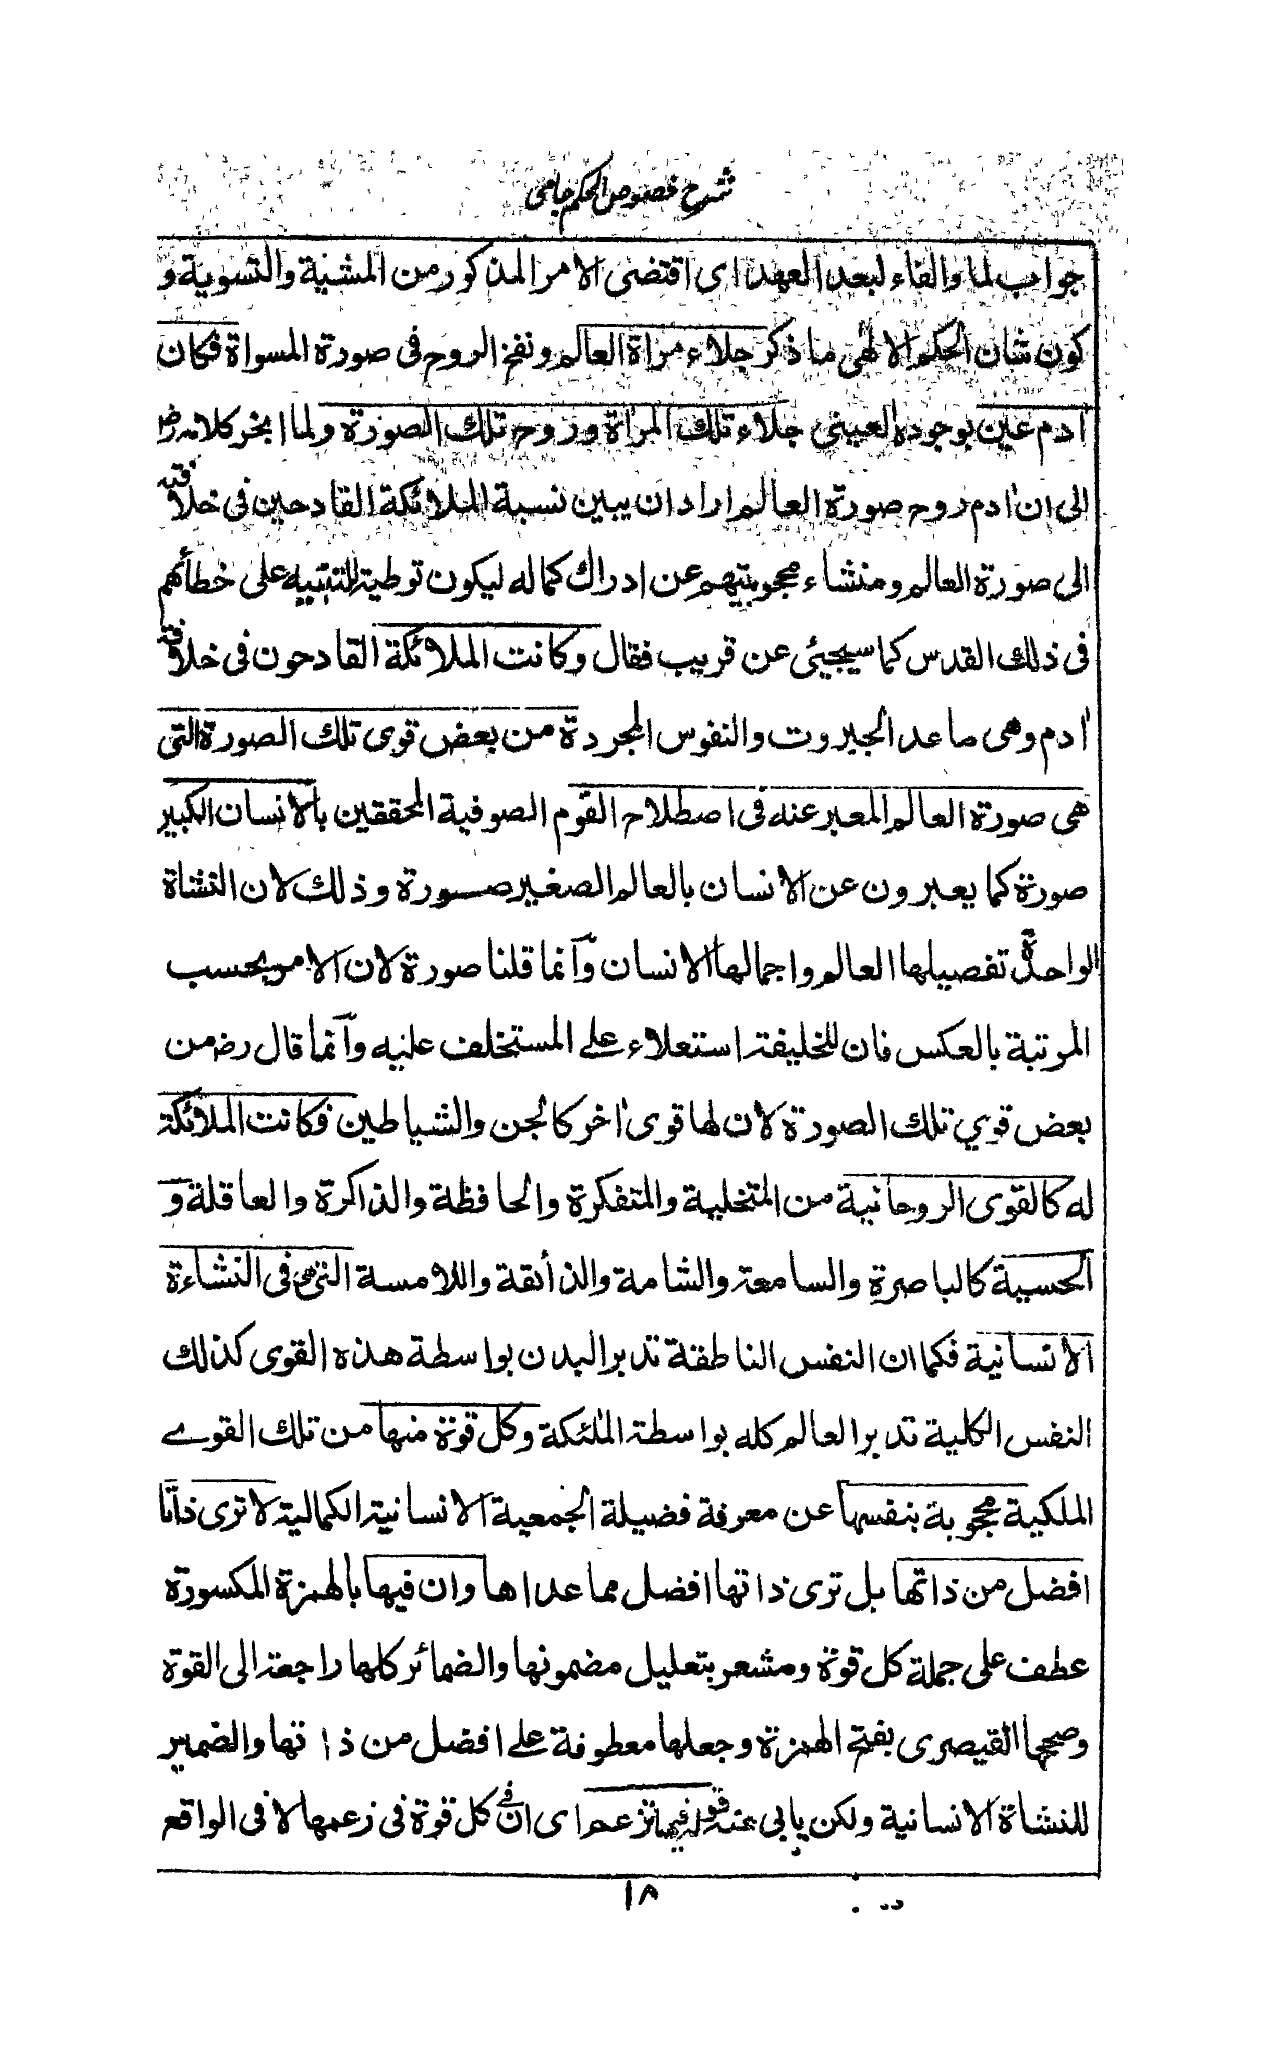 شرح فصوص الحكم جامى
جواب لما والفاء لبعد العهد اى اقتضى الامر المذكور من المشية والتسوية و
كون شان الحكم الالهى ما ذكر جلاء مراة العالم ونفخ الروح فى صورة المسواة فكان
اٰدم عين بوجوده العينى جلاء تلك المراٰة وروح تلك الصورة ولما انجر كلامه رض
الى ان اٰدم روح صورة العالم اراد ان يبين نسبة الملائكة القادحين فى خلافته
الى صورة العالم ومنشاء محجوبيتهم عن ادراك كماله ليكون توطية للتنبيه على خطائهم
فى ذلك القدس كما سيجيئى عن قريب فقال وكانت الملائكة القادحون فى خلافته
اٰدم وهى ما عدا الجبروت والنفوس المجردة من بعض قوى تلك الصورة التى
هى صورة العالم المعبر عنه فى اصطلاح القوم الصوفية المحققين بالانسان الكبير
صورة كما يعبرون عن الانسان بالعالم الصغير صورة وذلك لان النشاة
الواحدة تفصيلها العالم واجمالها الانسان وآنما قلنا صورة لان الامر بحسب
المرتبة بالعكس فان للخليفة استعلاء على المستخلف عليه وآنما قال رض من
بعض قوي تلك الصورة لان لها قوى اٰخر كالجن والشياطين فكانت الملائكة
له كالقوى الروحانية من المتخلية والمتفكرة والحافظة والذاكرة والعاقلة و
الحسية كالباصرة والسامعة والشامة والذائقة واللامسة التى هى فى النشاءة
الانسانية فكما ان النفس الناطقة تدبر البدن بواسطة هذه القوى كذلك
النفس الكلية تدبر العالم كله بواسطة الملٰئكة وكل قوة منها من تلك القوے
الملكية محجوبة بنفسها عن معرفة فضيلة الجمعية الانسانية الكمالية لا ترى ذاتا
افضل من ذاتها بل ترى ذاتها افضل مما عداها وان فيها بالهمزة المكسورة
عطف على جملة كل قوة ومشعر بتعليل مضمونها والضمائر كلها راجعة الى القوة
وصححها القيصرى بفتح الهمزة وجعلها معطوفة على افضل من ذاتها والضمير
للنشاة الانسانية ولكن يابى عنه قوله فيما تزعم اى ان فى كل قوة فى زعمها لا فى الواقع
١٨